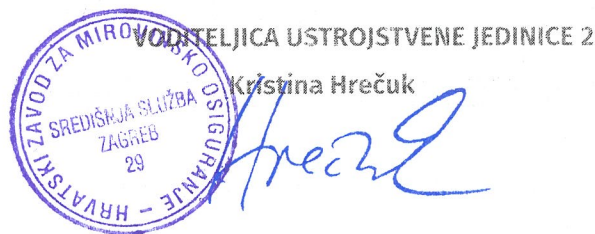 VODITELJICA USTROJSTVENE JEDINICE 2
Kristina Hrečuk
HRVATSKI ZAVOD ZA MIROVINSKO OSIGURANJE –
SREDIŠNJA SLUŽBA
ZAGREB
29
Hrečuk